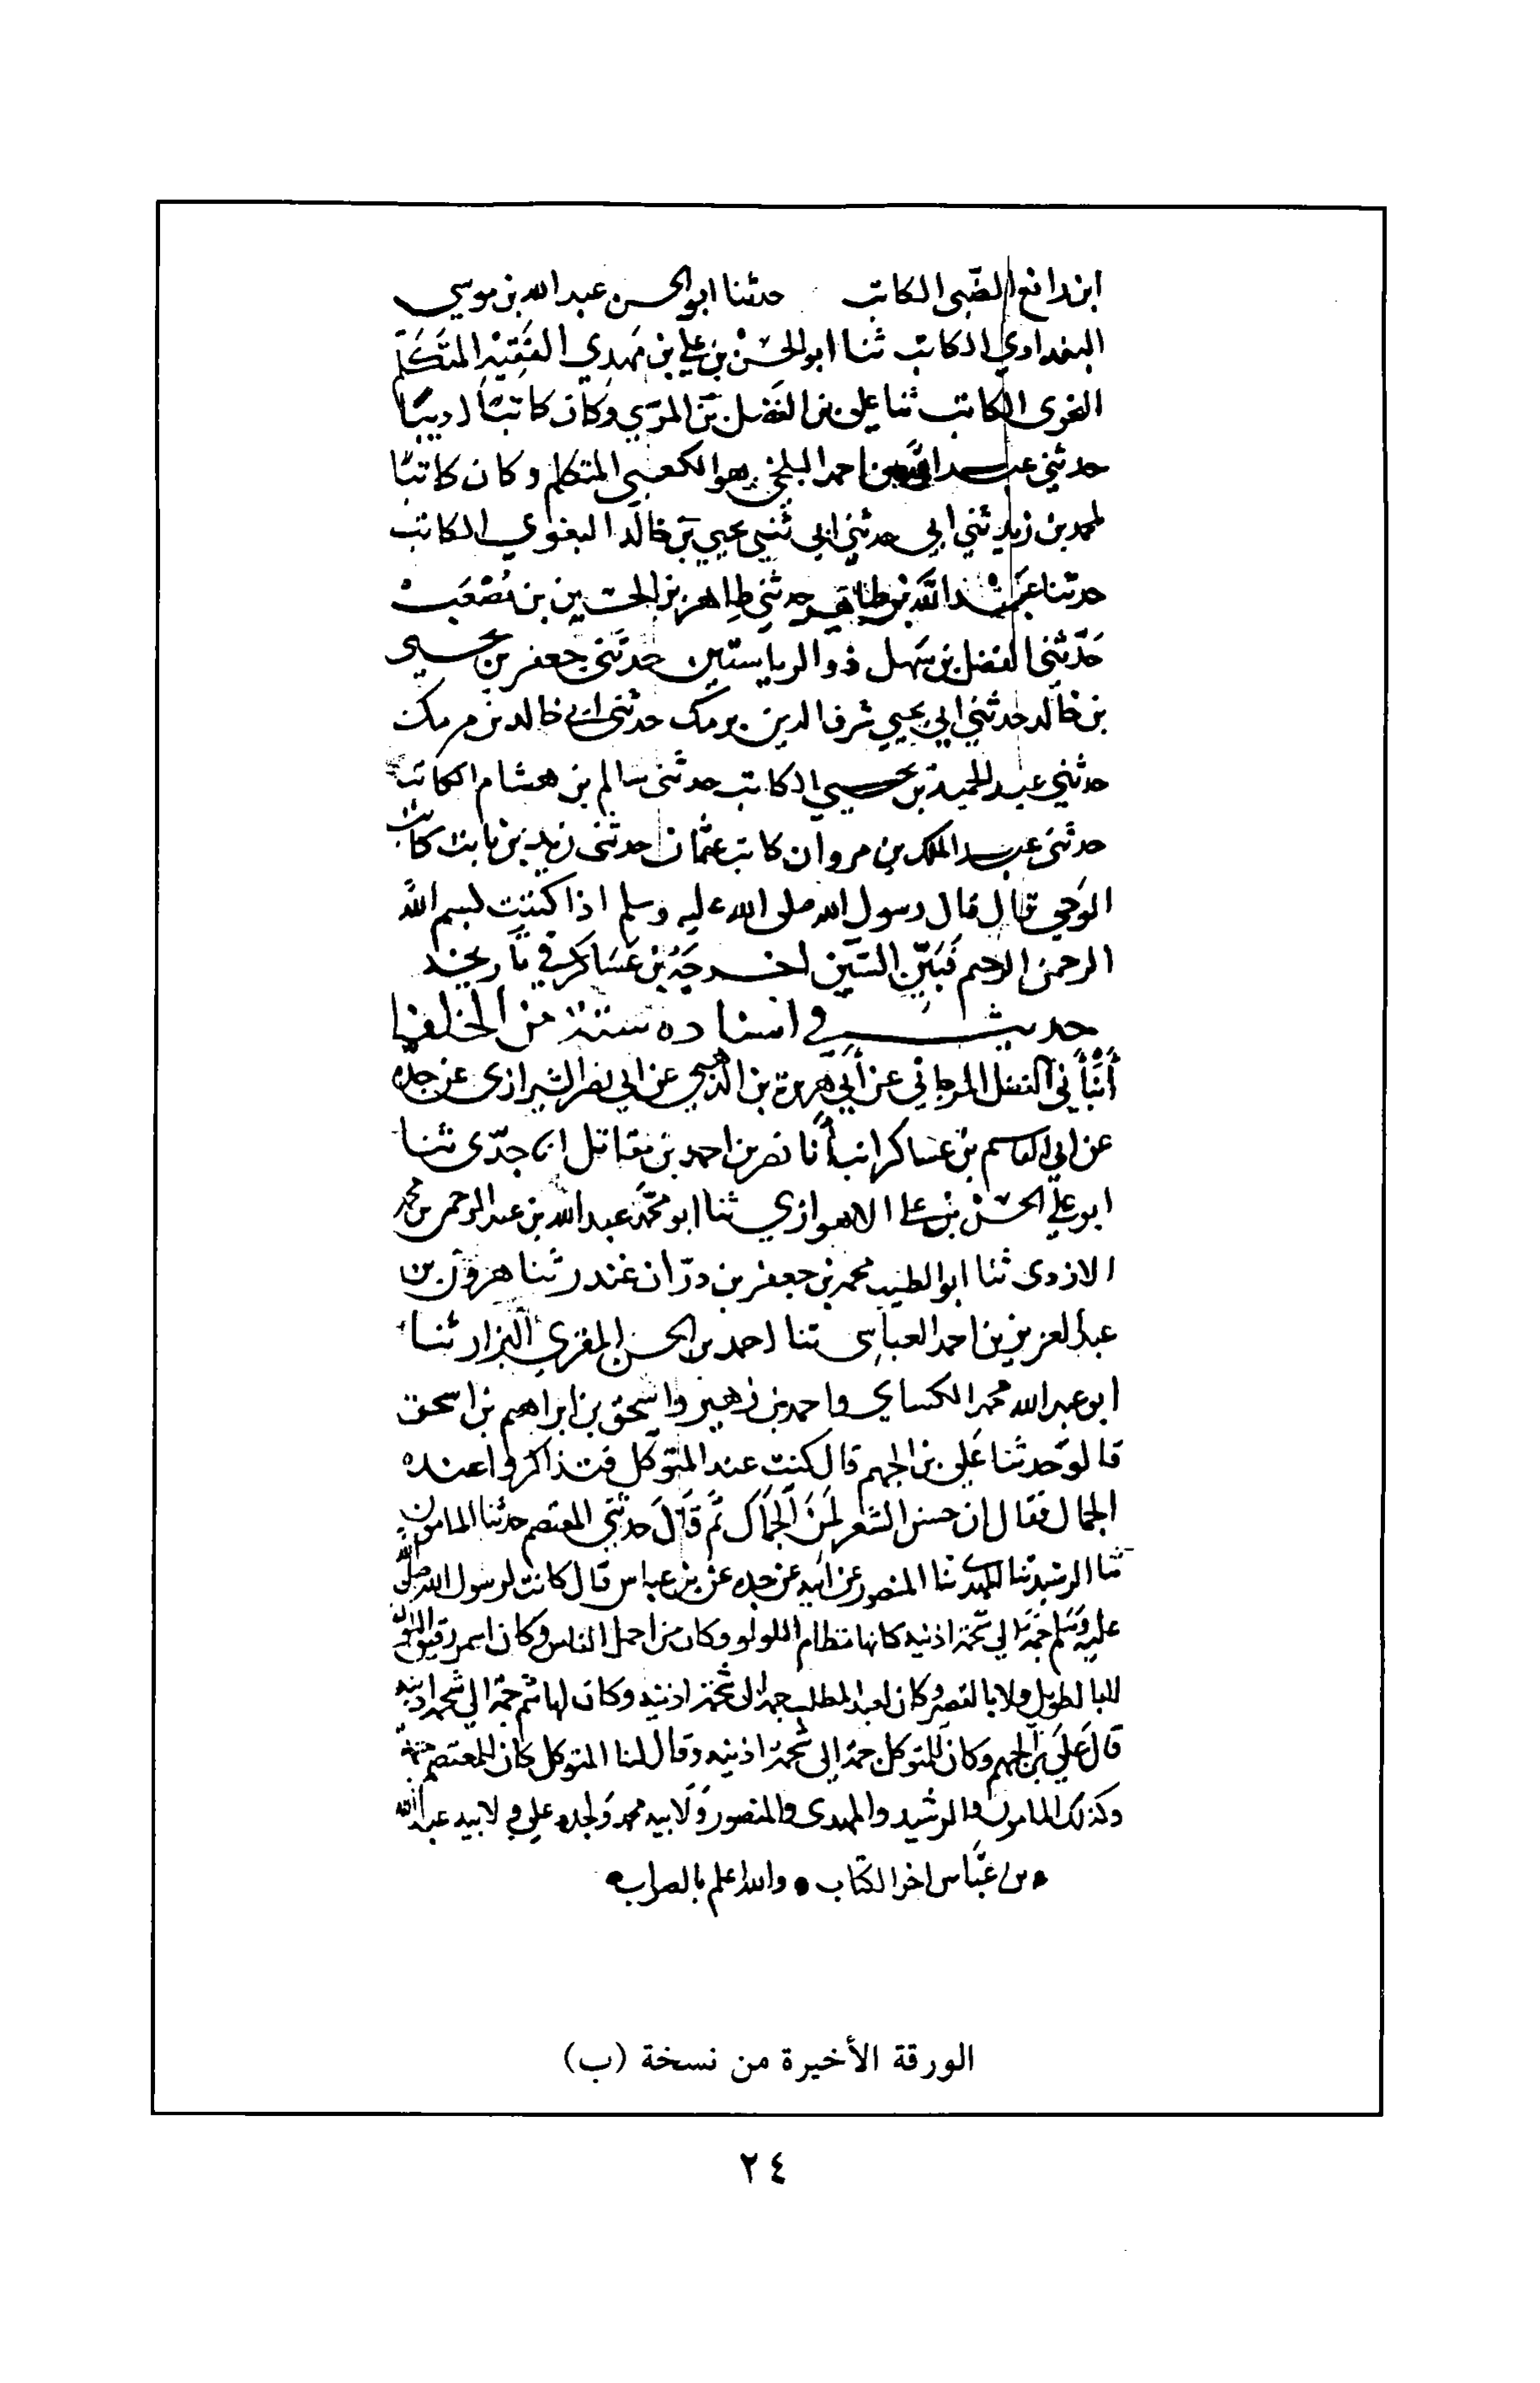 ابن رافع الضبى الكاتب حدثنا ابو الحسن عبد الله بن موسي
البغدادي الكاتب ثنا ابو الحسن بن علي بن مهدي الفقيه المتكلم
الغوى الكاتب ثنا علي بن الفضل بن المرى وكان كاتبا اديبا
حدثني عبد الله بن احمد البلخي هو الكعبى المتكلم وكان كاتبا
لمحمد بن زيد ثني ابي حدثني ابى ثني يحيى بن خالد البغوي الكاتب
حدثنا عبد الله بن طاهر حدثني طاهر بن الحسين بن مصعب
حدثني الفضل بن سهل ذو الرياستين حدثني جعفر بن يحيى
بن خالد حدثني ابي يحيي شرف الدين برمك حدثنى ابي خالد بن برمك
حدثني عبد الحميد بن يحيي الكاتب حدثنى سالم بن هشام الكاتب
حدثنى عبد الملك بن مروان كاتب عثمان حدثنى زيد بن ثابت كاتب
الوحي قال قال رسول الله صلى الله عليه وسلم اذا كتبت بسم الله
الرحمن الرحيم فبين السين اخرجه بن عساكر في تاريخه
حديث في اسناده ستة من الخلفا
أنبأني الفضل المرجاني عن أبي هريرة بن الذهبي عن ابي نصر الشيرازى عن جده
عن ابي القاسم بن عساكر انبأنا نصر بن احمد بن مقاتل انا جدى ثنا
ابو علي الحسن بن علي الاهوازي ثنا ابو محمد عبد الله بن عبد الرحمن بن محمد
الازدى ثنا ابو الطيب محمد بن جعفر بن درّان غندر ثنا هرون بن
عبد العزيز بن احمد العباسى ثنا احمد بن الحسن المقرى البزار ثنا
ابو عبد الله محمد الكساي واحمد بن زهير واسحق بن ابراهيم بن اسحق
قالو حدثنا علي بن الجهم قال كنت عند المتوكل فتذاكروا عنده
الجمال فقال ان حسن الشعر لمن الجمال ثم قال حدثني المعتصم حدثنا المامون
ثنا الرشيد ثنا المهدي ثنا المنصور عن ابيه عن جده عن بن عباس قال كانت لرسول الله صلى الله
عليه وسلم جمة الي شحمة اذنيه كانها نظام اللولو وكان من اجمل الناس وكان اسمر رقيق اللون
لا بالطويل ولا بالقصير وكان لعبد المطلب جمة الى شحمة اذنيه وكان لهاشم جمة الي شحمة اذنيه
قال علي بن الجهم وكان للمتوكل جمة الى شحمة اذنيه وقال لنا المتوكل كان للمعتصم جمة
وكذلك المامون والرشيد والمهدى والمنصور ولابيه محمد ولجده علي ولابيه عبد الله
بن عباس اخر الكتاب والله اعلم بالصواب
الورقة الأخيرة من نسخة (ب)
٢٤